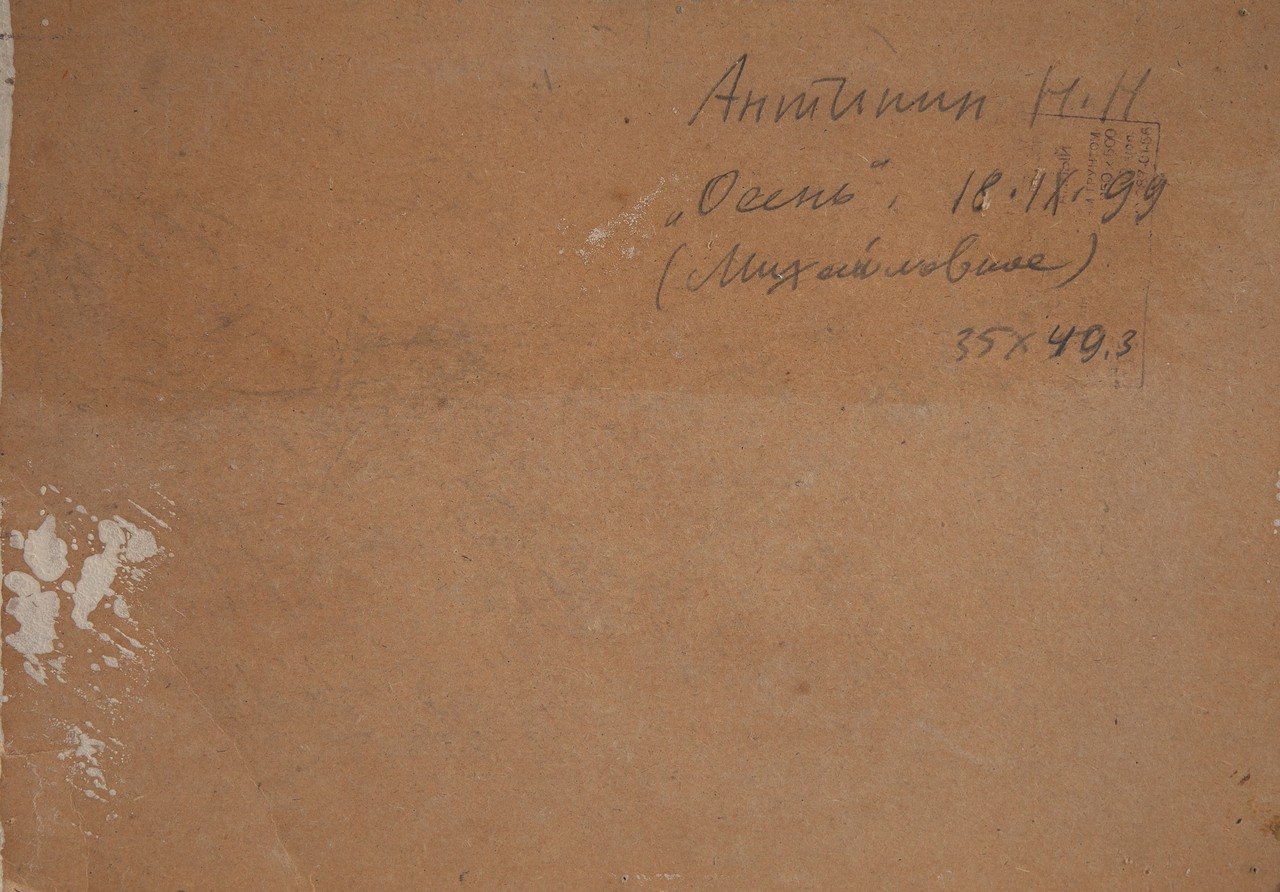 Антипин Н.Н
„Осень". 18.IX.99
(Михайловное)
35х49.3